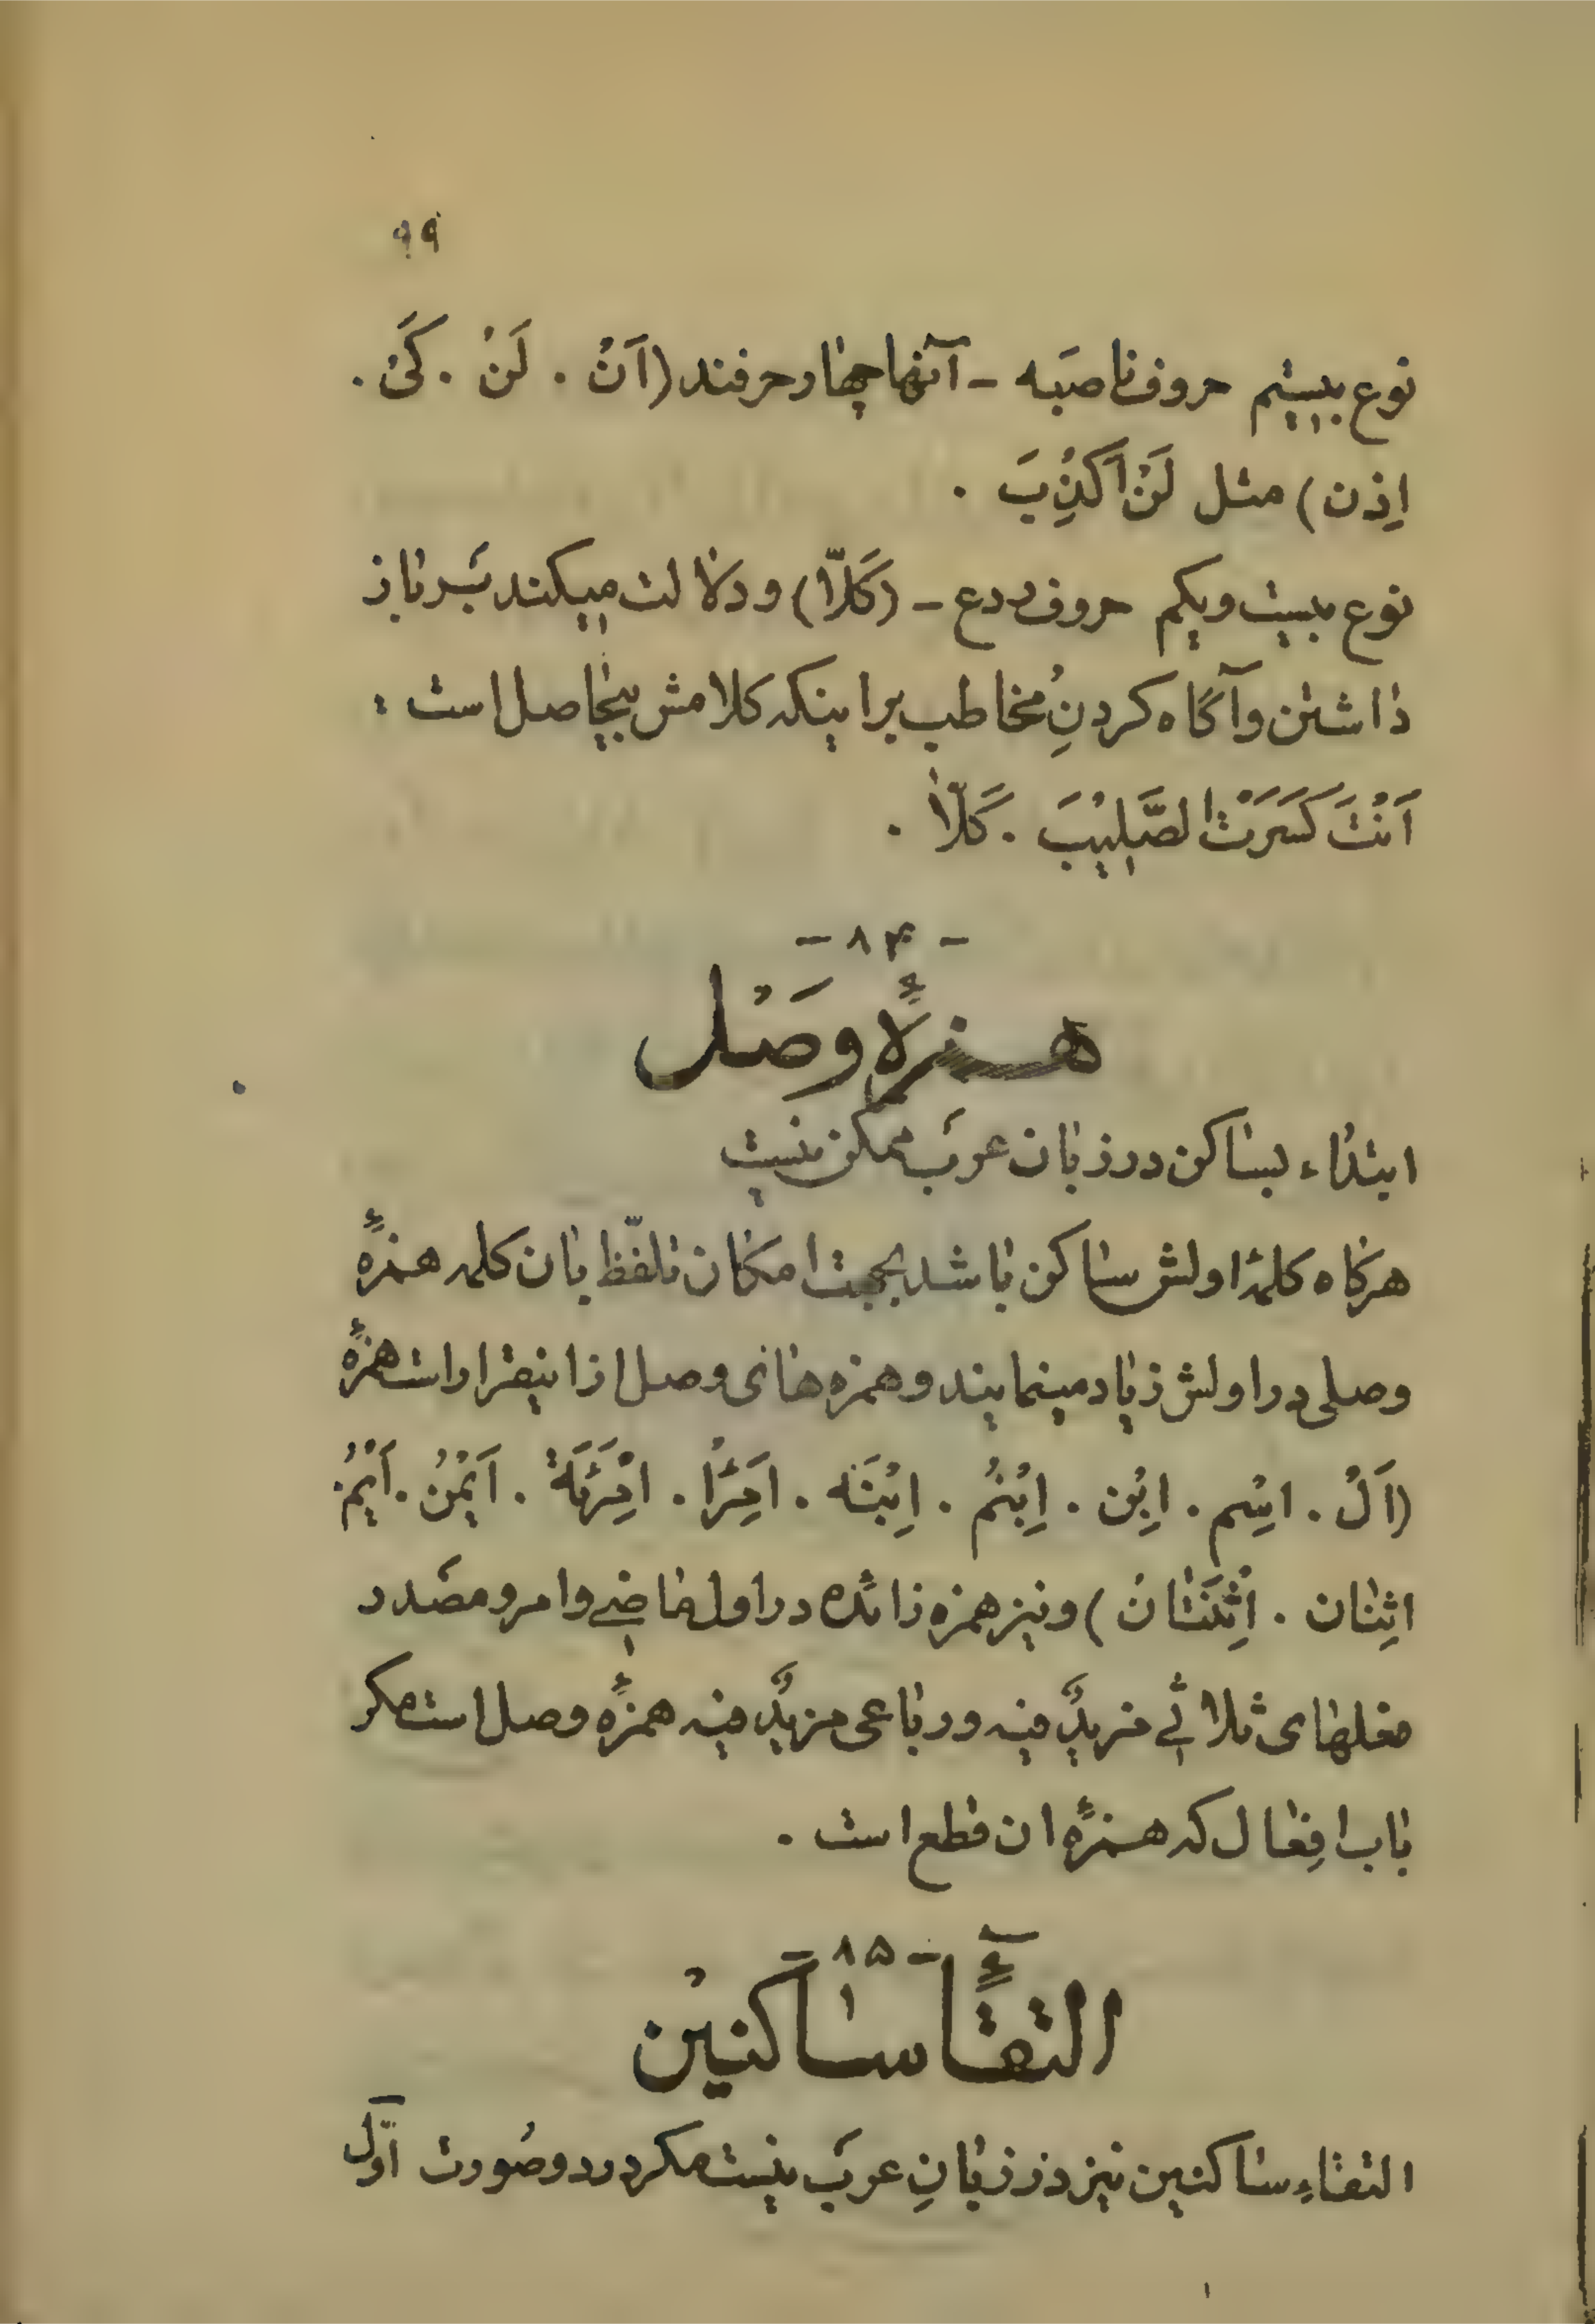 ۹۹
نوع بیستم حروف ناصبه - آنها چهار حرفند (اَنْ . لَنْ . کَیْ .
اِذن) مثل لَنْ اَکْذِبَ .
نوع بیست ویکم حروف ردع - (کَلّا) و دلالت میکند بَر باز
داشتن و آگاه کردنِ مُخاطب بر اینکه کلامش بیحاصل است :
اَنْتَ کَسَرْتَ الصَّلیْبَ . کَلّا .
- ۸۴ -
همزهٔ وَصْل
ابتداء بساکن در زبان عرَب ممکن نیست
هرگاه کلمهٔ اولش ساکن باشد بجهت امکان تلفّظ بان کلمه همزهٔ
وصلی در اولش زیاد مینمایند و همزه های وصل از اینقرار است همزهٔ
(اَلْ . اسْم . اِبْن . اِبْنُمْ . اِبْنَه . امْرَءْ . امْرَئَة . اَیْمُنْ . اَیْمُ .
اثِنان . اِثْنَتانْ) و نیز همزه زائده در اول ماضی و امر و مصَدر
فعلهای ثلاثی مزیدٌ فیه و رباعی مزیدٌ فیه همزهٔ وصل است مگر
باب افِعال که همزهٔ ان قطع است .
- ۸۵ -
التقآءِ ساکنیْن
التقاءِ ساکنین نیز در زبانِ عرَب نیست مگر در دو صُورت اوّل